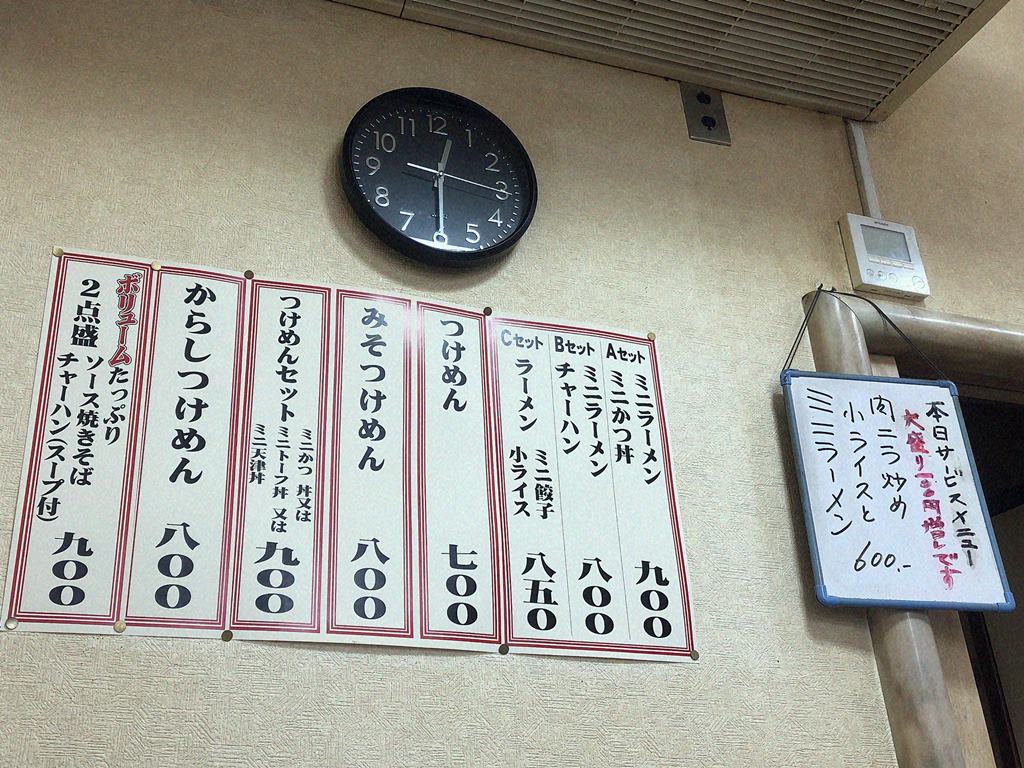 12
1
2
3
4
5
6
7
8
9
10
11
Aセット
ミニラーメン
ミニかつ丼
九〇〇
Bセット
ミニラーメン
チャーハン
八〇〇
Cセット
ラーメン
ミニ餃子
小ライス
八五〇
つけめん
七〇〇
みそつけめん
八〇〇
つけめんセット
ミニかつ丼又は
ミニトーフ丼 又は
ミニ天津丼
九〇〇
からしつけめん
八〇〇
ボリュームたっぷり
2点盛
ソース焼きそば
チャーハン(スープ付)
九〇〇
本日サービスメニュー
大盛り100円増しです
肉ニラ炒め
小ライスと
ミニラーメン
600.-